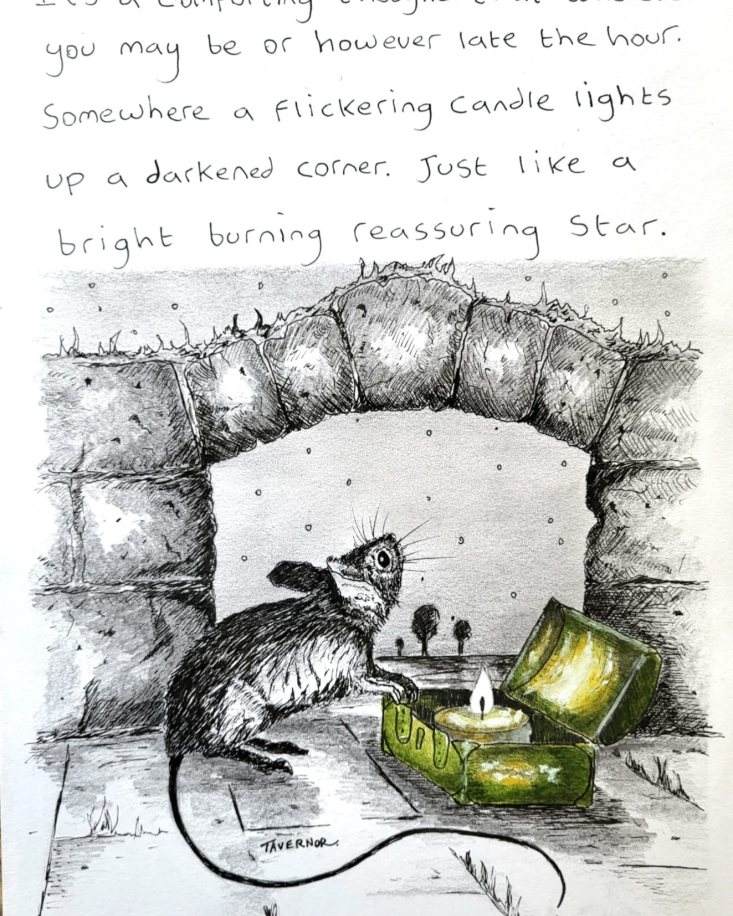 It's a comforting thought that
you may be or however late the hour.
Somewhere a flickering candle lights
up a darkened corner. Just like a
bright burning reassuring star.
TAVERNOR.